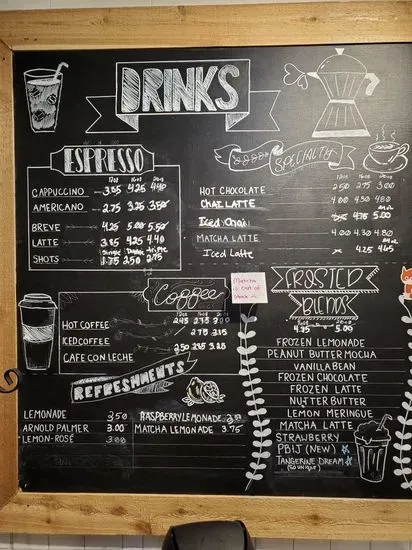 DRINKS
ESPRESSO
12oz 16oz 20oz
CAPPUCCINO 3.85 4.25 4.40
AMERICANO 2.75 3.25 3.50
BREVE 4.25 5.00 5.50
LATTE 3.85 4.25 4.40
Single Double triple
SHOTS 1.75 2.50 2.75
SPECIALTY
12oz 16oz 20oz
HOT CHOCOLATE 2.50 2.75 3.00
CHAI LATTE 4.00 4.30 4.80
Iced Chai 5.00
MATCHA LATTE 4.00 4.30 4.80
Iced Latte 4.25 4.65
Matcha
is out of
stock
Coffee
12oz 16oz 20oz
HOT COFFEE 2.45 2.75 3.00
ICED COFFEE 2.75 3.15
CAFE CON LECHE 2.50 2.75 3.25
REFRESHMENTS
LEMONADE 3.50
ARNOLD PALMER 3.00
LEMON-ROSÉ 3.00
RASPBERRY LEMONADE 3.75
MATCHA LEMONADE 3.75
FROSTED
BLENDS
16oz 20oz
4.75 5.00
FROZEN LEMONADE
PEANUT BUTTER MOCHA
VANILLA BEAN
FROZEN CHOCOLATE
FROZEN LATTE
NUTTER BUTTER
LEMON MERINGUE
MATCHA LATTE
STRAWBERRY
PBIJ (NEW)
TANGERINE DREAM
(SO UNIQUE)